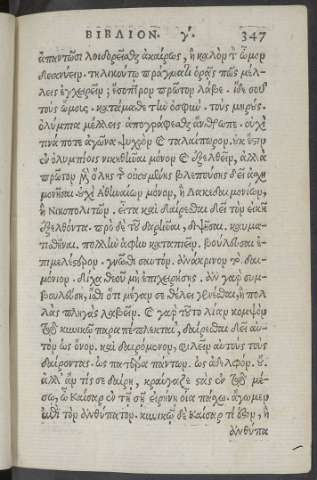 ΒΙΒΛΙΟΝ. γ. 347
ἀπαντῶσι λοιδορεῖσθαι ἀκαίρως, ἢ καλὸν τὸ ὦμον
δεικνύειν. τηλικούτω πράγματι ὁρᾷς πῶς μέλ-
λεις ἐγχειρεῖν; ἔσοπτρον πρῶτον λάβε. ἴδε σοῦ
τοὺς ὤμους. κατάμαθε τὴν ὀσφῦν. τοὺς μηρούς.
ὀλύμπια μέλλεις ἀπογράφεσθαι ἄνθρωπε. οὐχί
τινά ποτε ἀγῶνα ψυχρὸν καὶ ταλαίπωρον. οὐκ ἔστιν
ἐν ὀλυμπίοις νικηθῆναι μόνον καὶ ἐξελθεῖν, ἀλλὰ
πρῶτον μὲν ὅλης τῆς οἰκουμένης βλεπούσης δεῖ ἀσχη-
μονῆσαι οὐχὶ Ἀθηναίων μόνον, ἢ Λακεδαιμονίων,
ἢ Νικοπολιτῶν. εἶτα καὶ δαίρεσθαι δεῖ τὸν εἰκῆ
ἐξελθόντα. πρὸ δὲ τοῦ δαρῆναι, διψῆσαι. καυμα-
τισθῆναι. πολλὴν ἁφὴν καταπιεῖν. βούλευσαι ἐ-
πιμελέστερον. γνῶθι σαυτόν. ἀνάκρινον τὸ δαι-
μόνιον. δίχα θεοῦ μὴ ἐπιχειρήσῃς. ἂν γὰρ συμ-
βουλεύσῃ, ἴσθι ὅτι μέγαν σε θέλει γενέσθαι, ἢ πολ-
λὰς πληγὰς λαβεῖν. καὶ γὰρ τοῦτο λίαν κομψὸν
τῷ κυνικῷ παραπέπλεκται, δαίρεσθαι δεῖ αὐ-
τὸν ὡς ὄνον. καὶ δαιρόμενον, φιλεῖν αὐτοὺς τοὺς
δαίροντας. ὡς πατέρα πάντων. ὡς ἀδελφόν. οὔ.
ἀλλ' ἄν τίς σε δαίρῃ, κραύγαζε στὰς ἐν τῷ μέ-
σῳ, ὦ Καῖσαρ ἐν τῇ σῇ εἰρήνῃ οἷα πάσχω. ἄγωμεν
ἐπὶ τὸν ἀνθύπατον. κυνικῷ δὲ Καῖσαρ τί ἐστιν, ἢ
ἀνθύπα